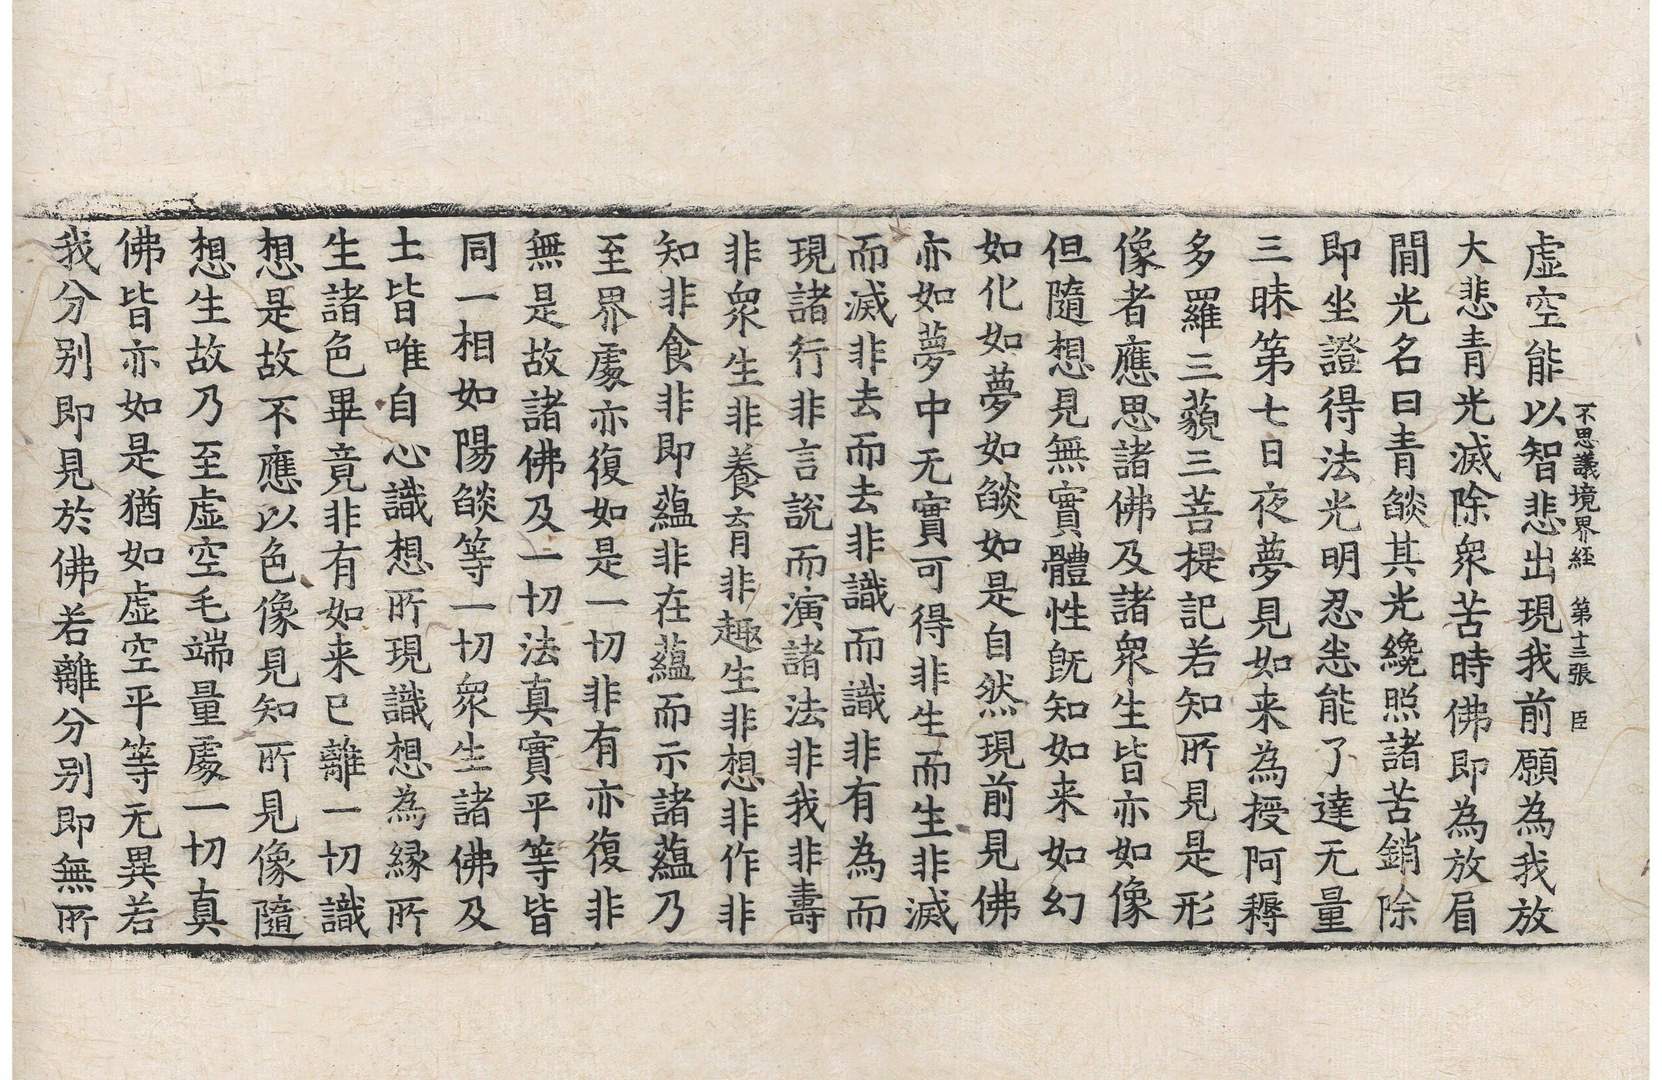 不思議境界経 第十三張 臣
虚空能以智悲出現我前願為我放
大悲青光滅除衆苦時佛即為放眉
閒光名曰青燄其光纔照諸苦銷除
即坐證得法光明忍悉能了達无量
三昧第七日夜夢見如来為授阿耨
多羅三藐三菩提記若知所見是形
像者應思諸佛及諸衆生皆亦如像
但隨想見無實體性旣知如来如幻
如化如夢如燄如是自然現前見佛
亦如夢中无實可得非生而生非滅
而滅非去而去非識而識非有為而
現諸行非言説而演諸法非我非壽
非衆生非養育非趣生非想非作非
知非食非即蘊非在蘊而示諸蘊乃
至界處亦復如是一切非有亦復非
無是故諸佛及一切法真實平等皆
同一相如陽燄等一切衆生諸佛及
土皆唯自心識想所現識想為縁所
生諸色畢竟非有如来已離一切識
想是故不應以色像見知所見像隨
想生故乃至虚空毛端量處一切真
佛皆亦如是猶如虚空平等无異若
我分别即見於佛若離分别即無所